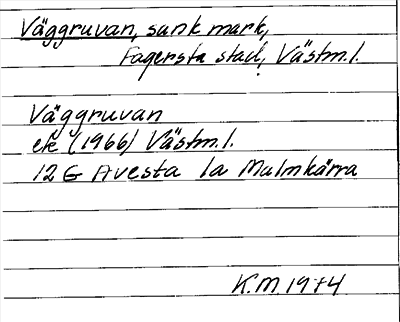 Väggruvan, sank mark,
Fagersta stad, Västm.l.
Väggruvan
ek (1966) Västm.l.
12 G Avesta 1a Malmkärra
K.M. 1974